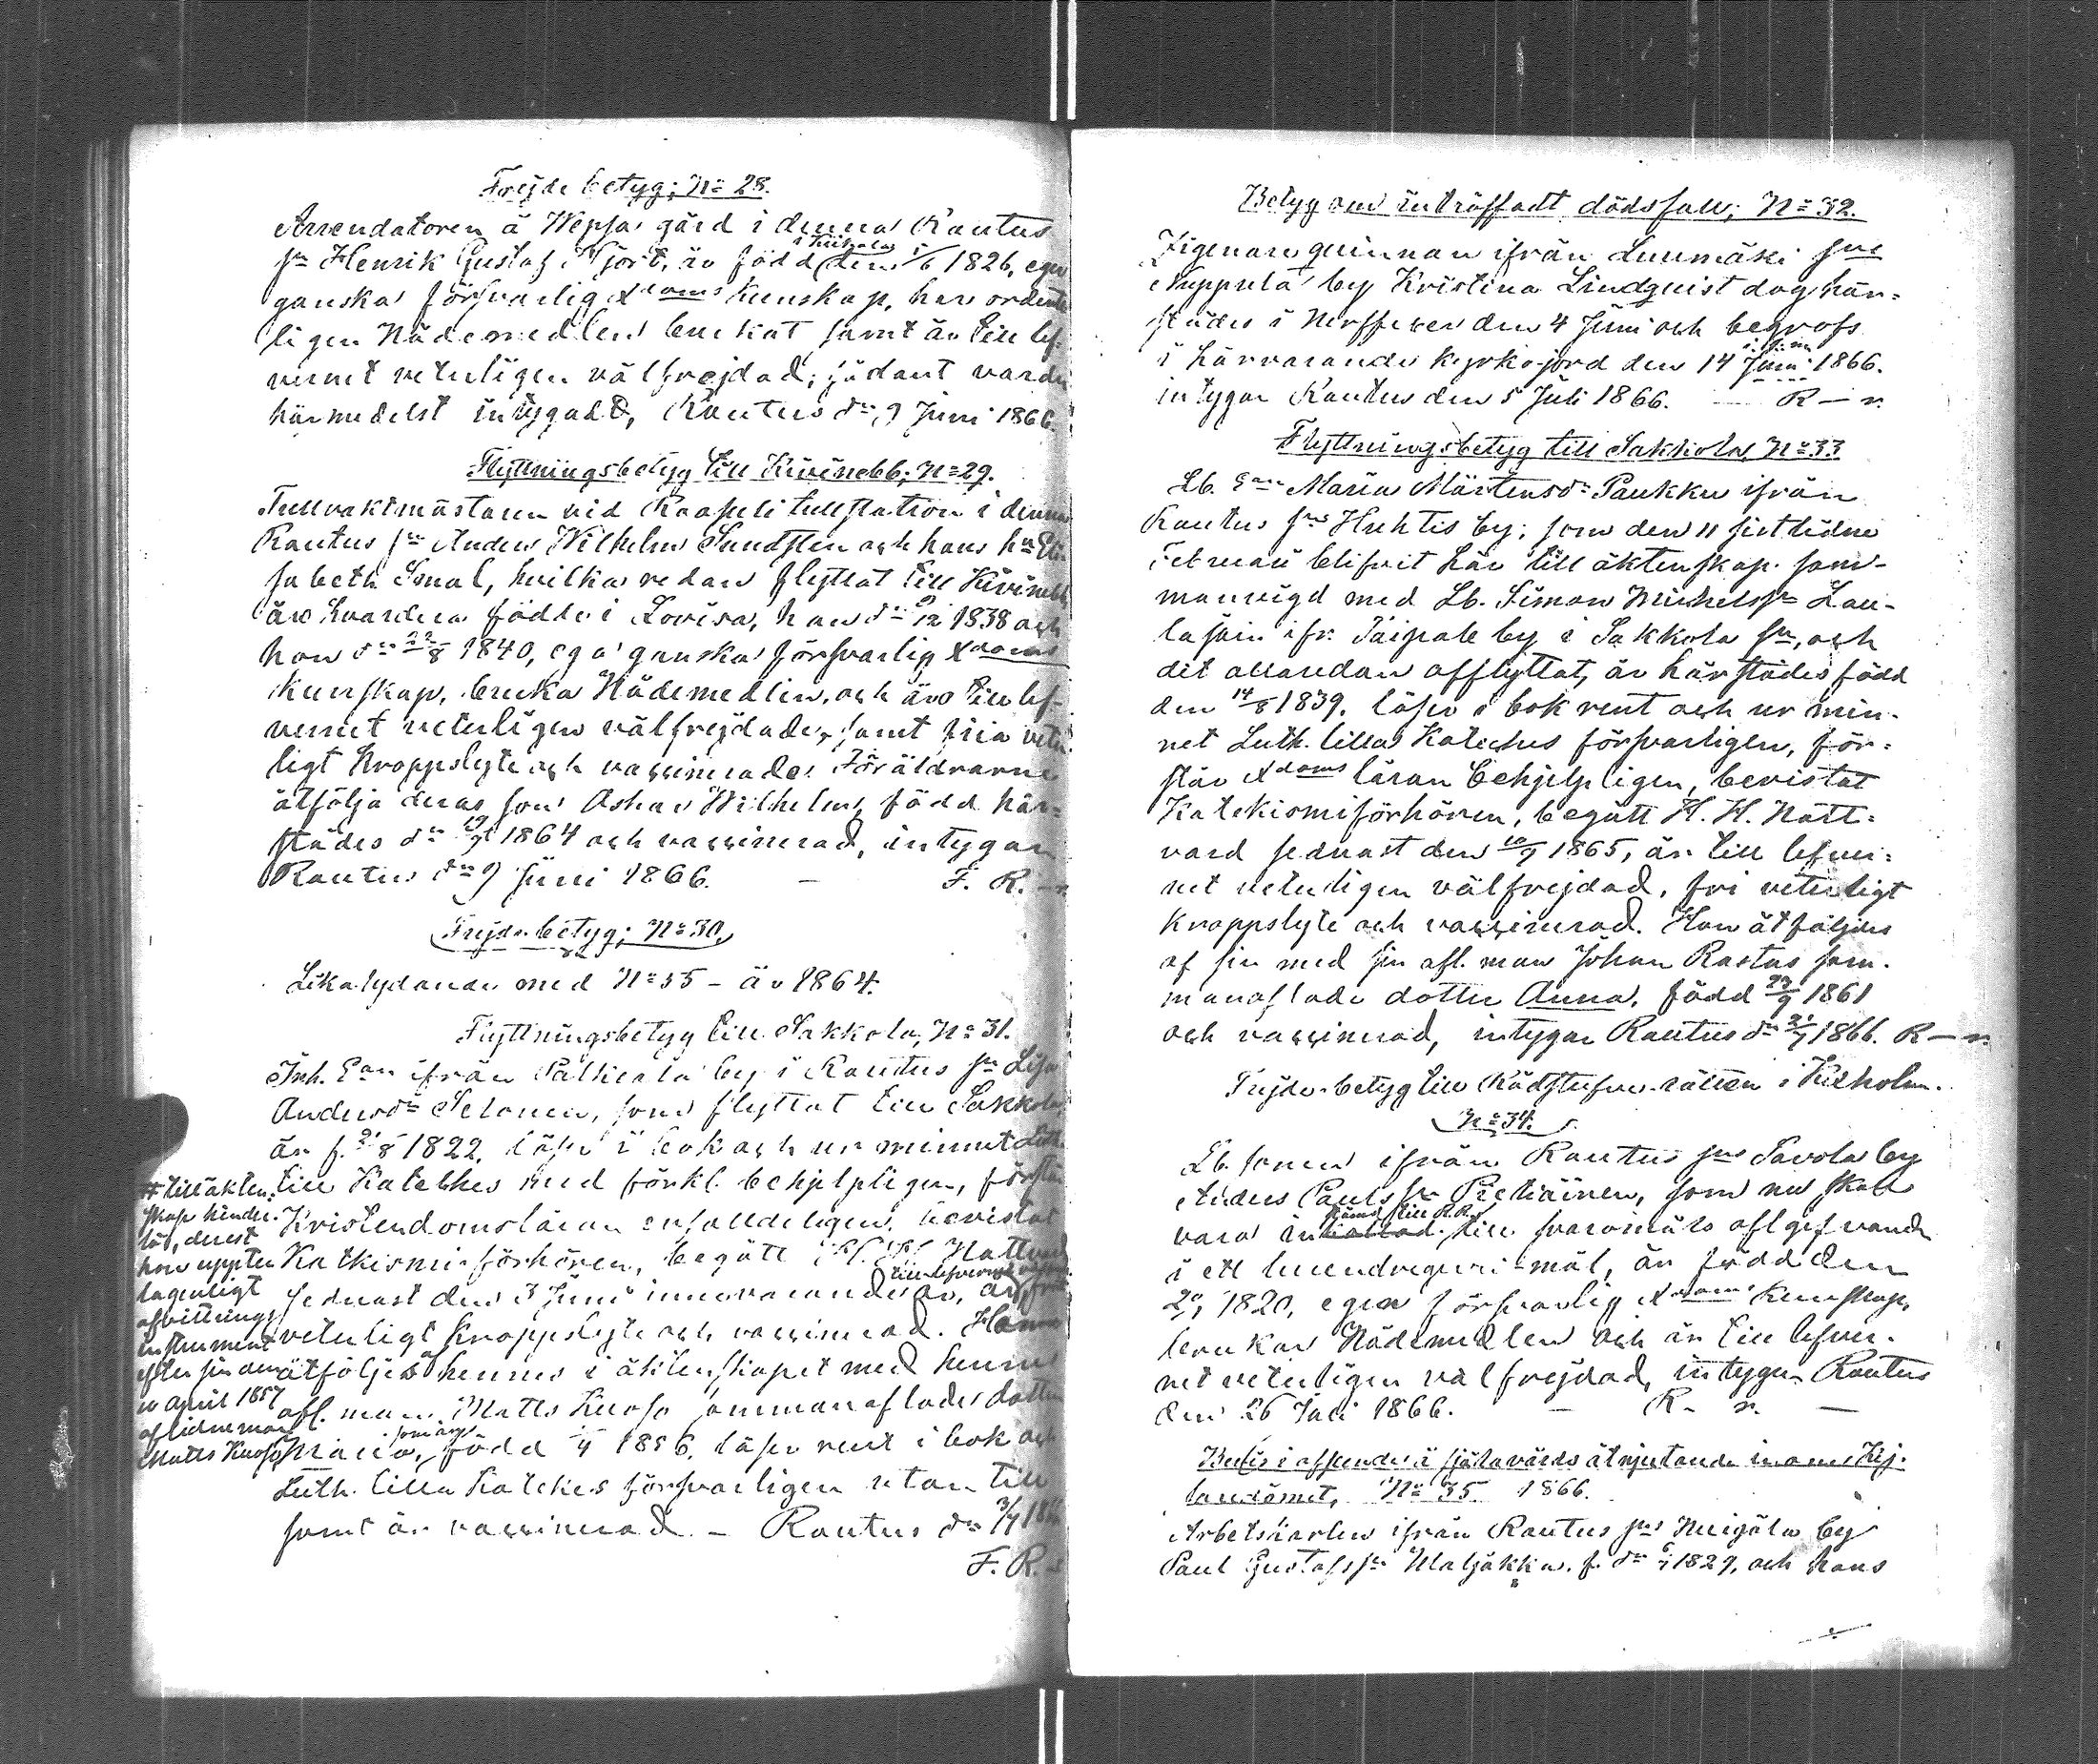 Frejde betyg; No 28.
Arrendatoren å Wepsa gård i denna Rautus
sn Henrik Gustaf Hjort, är född i Kiihola den 5/6 1826, eger
ganska försvarlig Xdoms kunskap, har ordent-
ligen Nådemedlen brukat samt är till lef-
vernet veterligen välfrejdad; sådant varder
härmedelst intygadt, Rautus dn 9 Juni 1866.
Flyttningsbetyg till Kivinebb; No 29.
Tullvaktmästaren vid Raasuli tullstation i denna
Rautus sn Anders Wilhelm Sundsten och hans hu Eli-
sabeth Smal, hvilka redan flyttat till Kivinebb
äro hvardera födde i Lovisa, han dn 9/12 1838 och
hon dn 22/8 1840, ega ganska försvarlig Xdoms
kunskap, bruka Nådemedlen, och äro till lef-
vernet veterligen välfrejdade, samt fria veter-
ligt kroppslyte och vaccinerade. Föräldrarne
åtfölja deras son Oskar Wilhelm, född här-
städes dn 19/9 1864 och vaccinerad, intygar
Rautus dn 9 Juni 1866. — F. R.—n.
Frejde betyg; No 30.
Likalydande med No 35 - år 1864.
Flyttningsbetyg till Sakkola, No 31.
Inh. Ean ifrån Palkeala by i Rautus sn Lisa
Andersdr Selonen, som flyttat till Sakkola
är f. 21/8 1822, läser i bok och ur minnet Luth.
lilla Kateches med förkl. behjelpligen, förstår
Kristendomsläran enfalldeligen, bevistat
Katkismi förhören, begått H. H. Nattvard
sednast den 3 Juni innevarande år, är till lefvernet fri
veterligt kroppslyte och vaccinerad. Henne
åtföljes af hennes i äktenskapet med hennes
afl. man Matts Kuosa sammanaflade dotter
Maria, som är född 1856, läser rent i bok och
Luth. lilla Katekes försvarligen utan till
samt är vaccinerad. — Rautus dn 3/7 1866
F. R.
# till äkten-
skap hinder-
lös, derest
hon uppter
lagenligt
afvittrings
instrument
efter sin den
april 1857
aflidne man
Matts Kuosa
Betyg om inträffadt dödsfall; No 32.
Zigenare quinnan ifrån Luumäki sns
Nuppola by Kristina Lindquist dog här-
städes i Nerffver den 4 Juni och begrofs
i härvarande kyrkojord den 14 Juni 1866.
intygar Rautus den 5 Juli 1866. R—n.
Flyttningsbetyg till Sakkola No 33
Lb. Ean Maria Mårtensdr Paukku ifrån
Rautus sns Huhtis by; som den 11 sistlidne
Februari blifvit här till äktenskap sam-
manvigd med Lb. Simon Michelssn Lau-
lajain ifr. Taipale by i Sakkola sn, och
dit allaredan afflyttat, är härstädes född
den 14/8 1839, läser i bok rent och ur min-
net Luth. lilla Kateches försvarligen, för-
står Xdoms läran behjelpligen, bevistat
Katekismiförhören, begått H. H. Natt-
vard sednast den 10/9 1865, är till lefver-
net veterligen välfrejdad, fri veterligt
kroppslyte och vaccinerad. Hon åtföljes
af sin med sin afl. man Johan Rastas sam-
manaflade dotter Anna, född 23/9 1861
och vaccinerad, intygar Rautus dn 21/7 1866. R—n.
Frejde-betyg till Rådstufvu-rätten i Kexholm.
No 34.
Lb. sonen ifrån Rautus sns Savola by
Anders Paulssn Pietiäinen, som nu skall
vara instämd till R.R. till svaromåls afgifvande
i ett lurendrejeri-mål, är född den
1820, eger försvarlig Xdoms kunskap,
brukar Nådemedlen och är till lefver-
net veterligen välfrejdad, intygar Rautus
den 26 Juli 1866. — R— n. —
Bevis i afseende å sjelavårds åtnjutande inom
No 35 1866.
Arbetskarlen ifrån Rautus sns Huigala by
Paul Gustafssn Maljakka, f. dn 6/7 1829, och hans